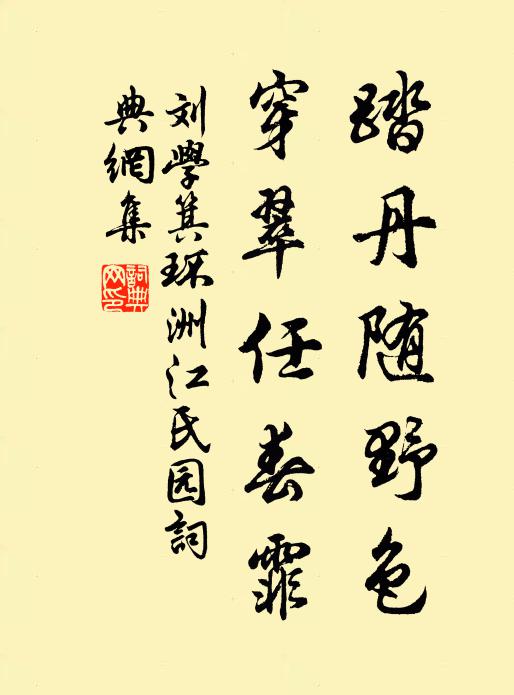 踏丹随野色
穿翠任春霏
刘学箕环洲江民园詞
典網集
詞典網印